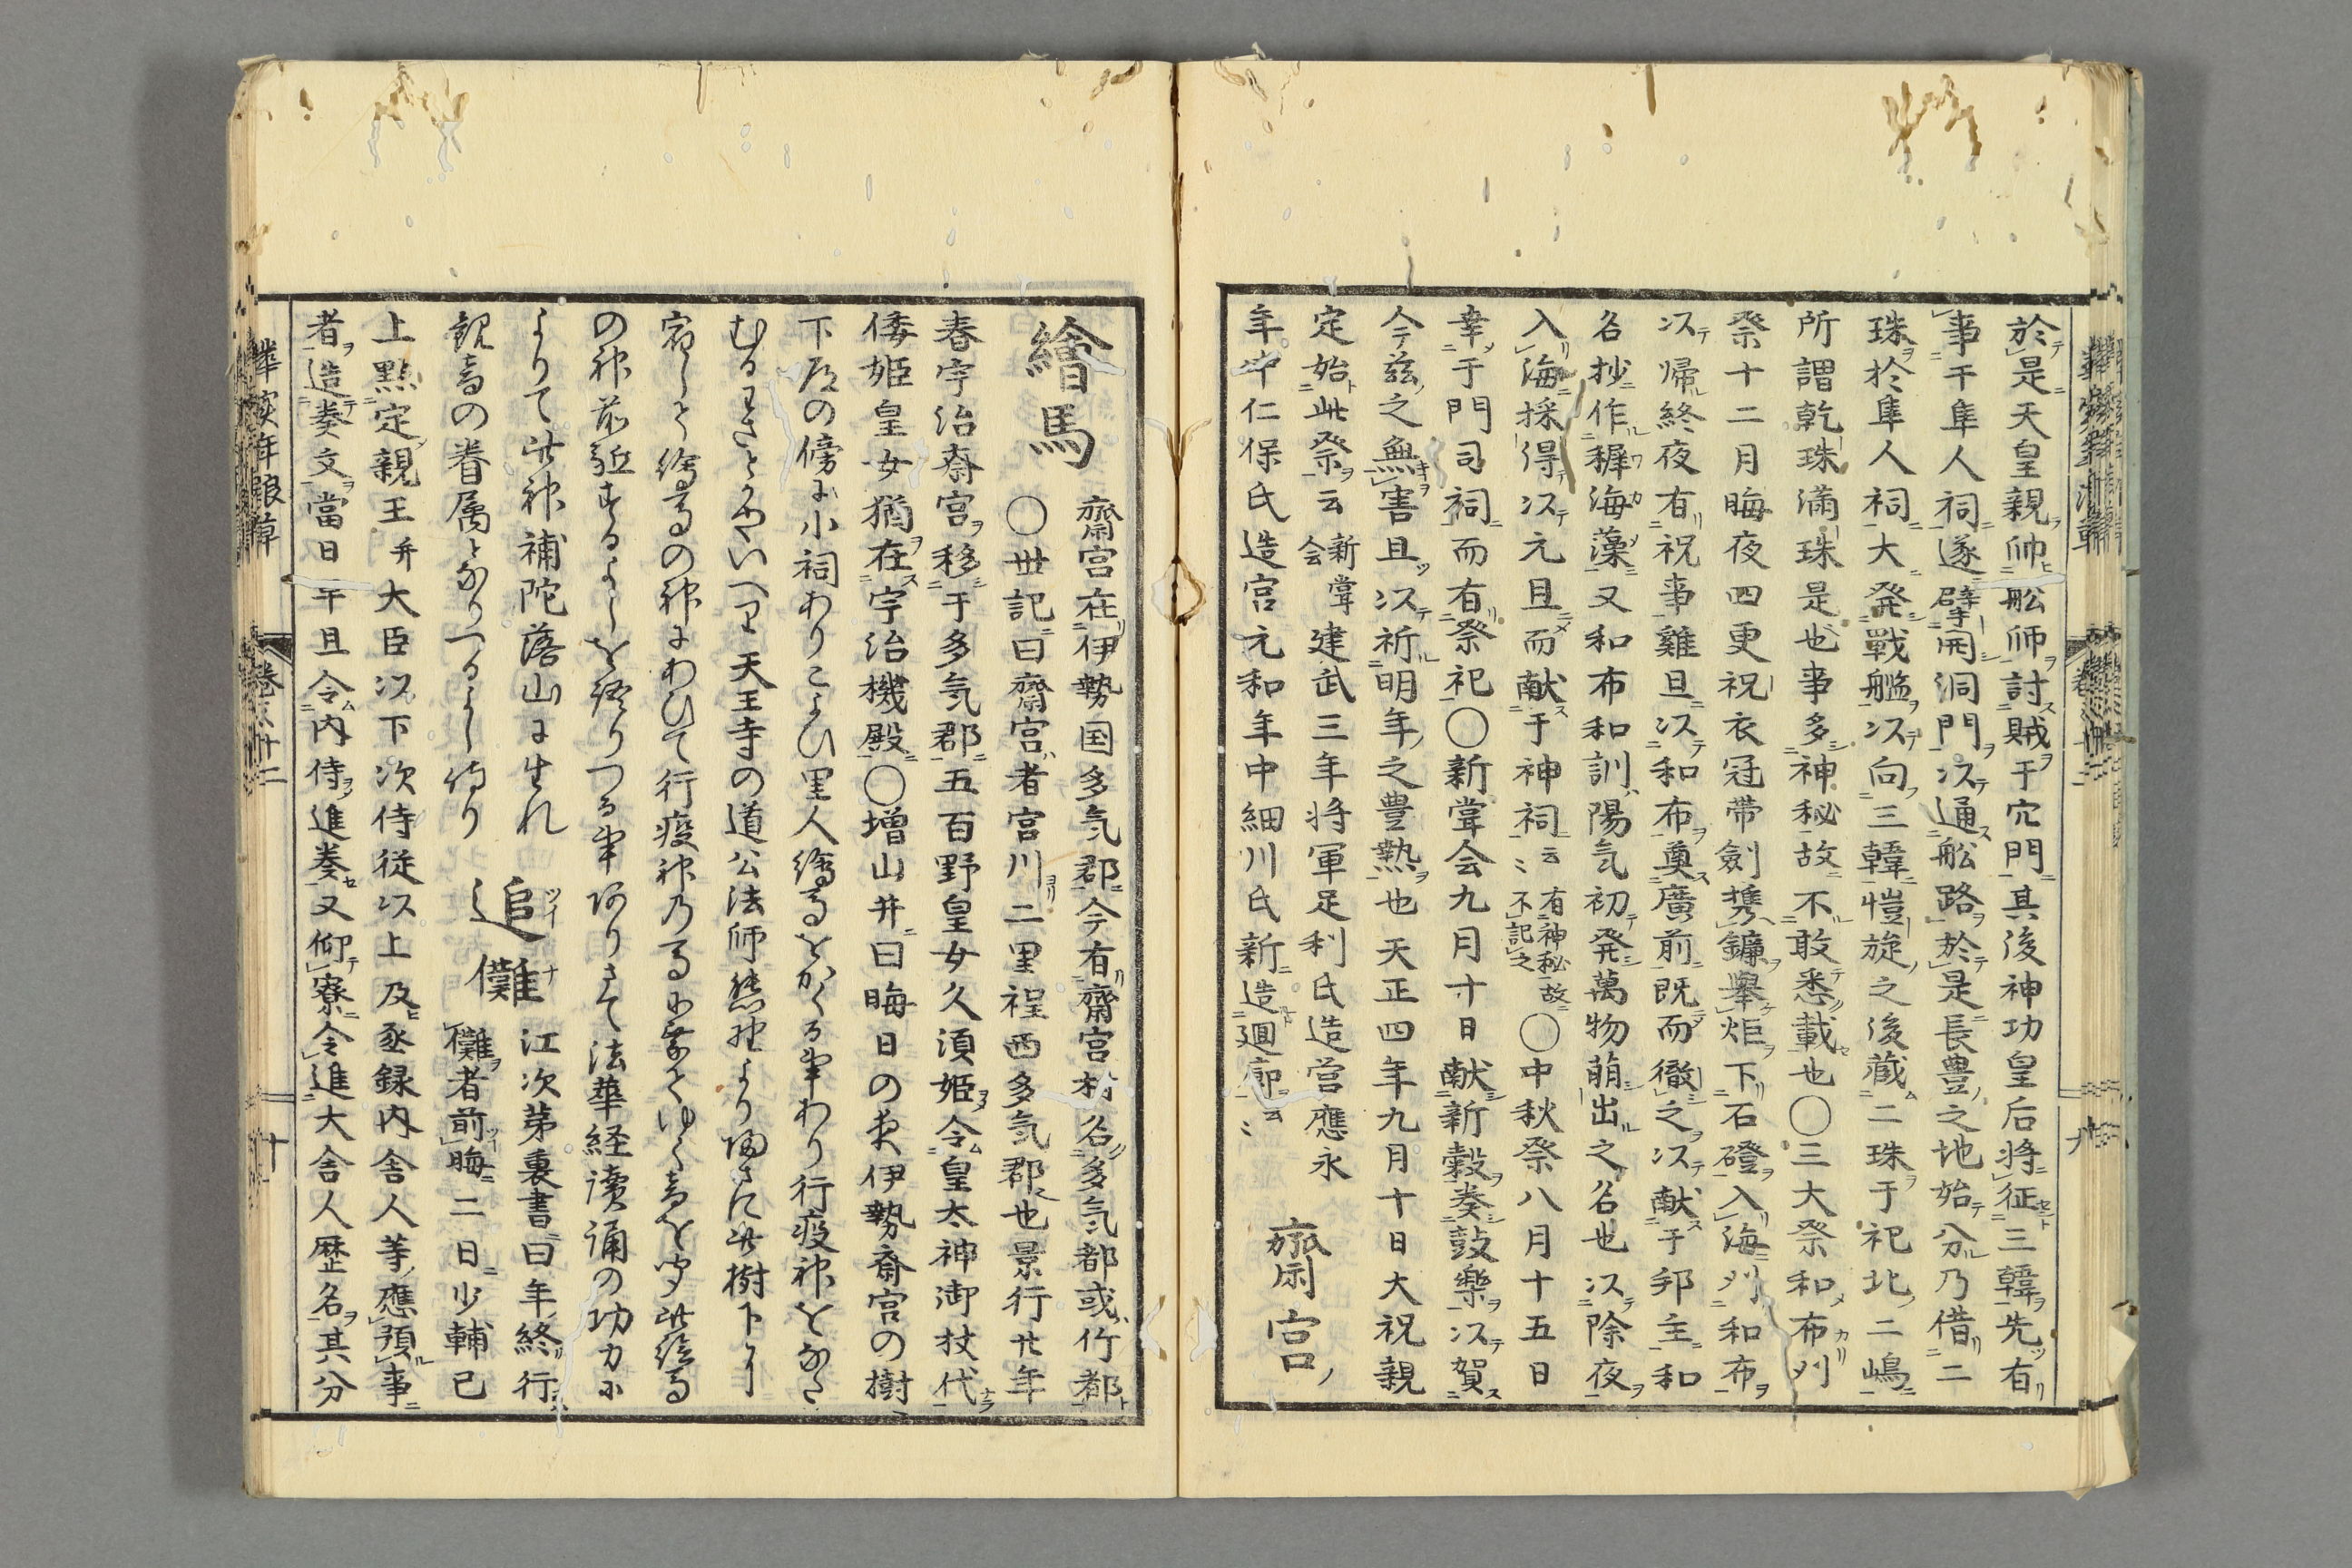 於是天皇親帥舩師討賊于穴門其後神功皇后將征三韓先有
事干隼人祠遂擘開洞門以通舩路於是長豊之地始分乃借二
珠於隼人祠大発戰艦以向三韓愷旋之後蔵二珠于祀北二嶋
所謂乾珠滿珠是也事多神秘故不敢悉載也〇三大祭和布刈
祭十二月晦夜四更祝衣冠帯劍携鐮舉炬下石磴入海刈和布
以帰終夜有祝事雞旦以和布奠廣前既而徹之以献于邦主和
名抄作稺海藻又和布和訓陽気初発萬物萌出之名也以除夜
入海採得以元旦而献于神祠云〻有神秘故不記之〇中秋祭八月十五日
幸于門司祠而有祭祀〇新甞会九月十日献新穀奏鼓樂以賀
今茲之無害且以祈明年之豊熟也天正四年九月十日大祝親
定始此祭云新甞会建武三年将軍足利氏造営應永
年中仁保氏造宮元和年中細川氏新造廻廊云〻
齋宮
繪馬
齋宮在伊勢国多気郡今有齋宮村名多気都或竹都
〇世記曰齋宮者宮川二里程西多気郡也景行廿年
春宇治齋宮移于多気郡五百野皇女久須姫令皇太神御杖代
倭姫皇女猶在宇治機殿〇増山井曰晦日の夜伊勢斎宮の樹
下道の傍に小祠わりこよひ里人繪馬をかくる事わり行疫神をなさ
むるわさとかやいへり天王寺の道公法師熊野より帰さに此樹下に
宿しと繪馬の神にわひて行疫神乃馬に乗てゆく音を聞此繪馬
の神前駈するよしを語りつる事ありさて法華経讀誦の功力に
よりて此神補陀落山に生れ
観音の眷属となりつるよし侍り
追儺
江次第裏書曰年終行
儺者前晦二日少輔已
上點定親王并大臣以下次侍従以上及丞録内舎人等應預事
者造奏文當日平旦令内侍進奏又仰寮令進大舎人歴名其分
華實年浪草
卷之十二
十
九